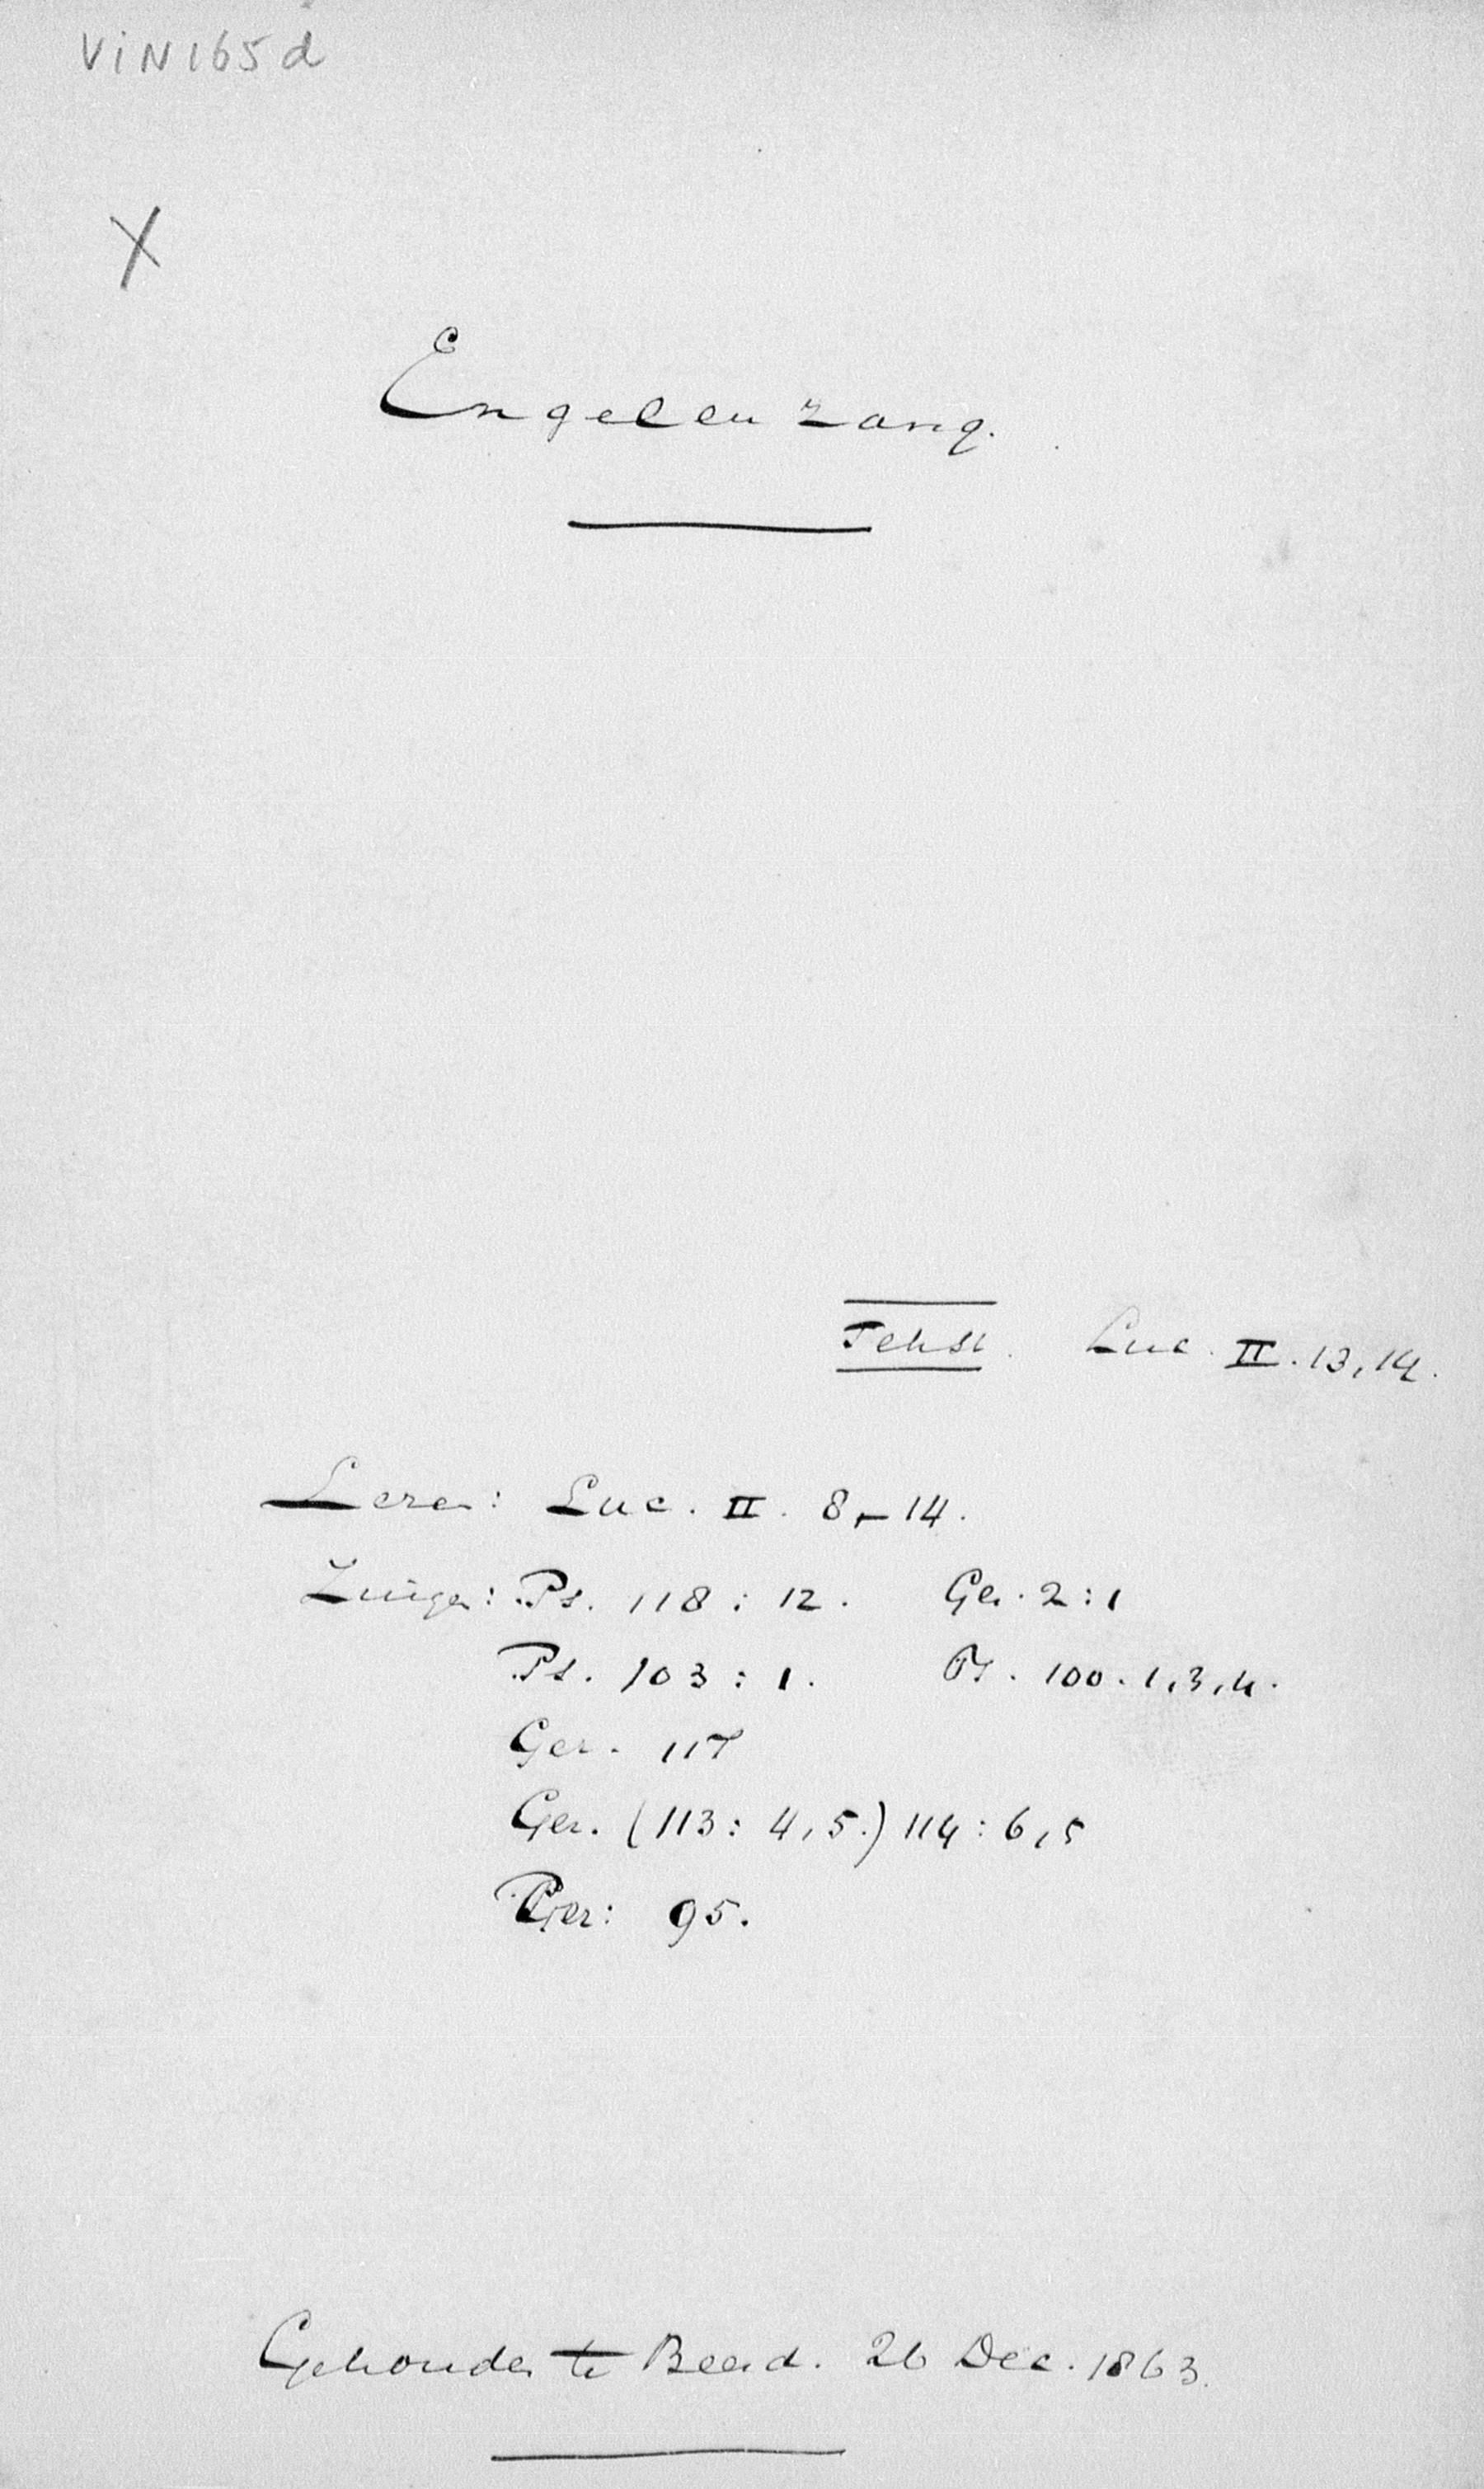 ViN165d
X
Engelenzang.
Tekst. Luc. II. 13, 14.
Lezen: Luc. II. 8-14.
Zingen: Ps. 118 : 12. Gez. 2 : 1
Ps. 103 : 1. Ps. 100. 1, 3, 4.
Gez. 117
Gez. (113 : 4, 5.) 114 : 6, 5
Gez: 95.
Gehouden te Beesd. 26 Dec. 1863.